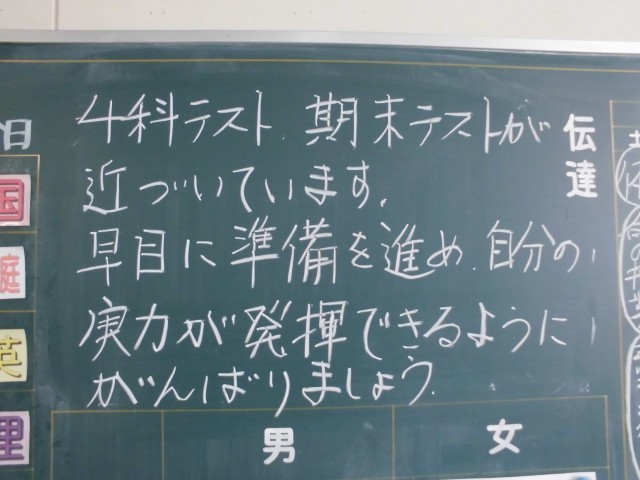 4科テスト、期末テストが
近づいています。
早目に準備を進め、自分の
実力が発揮できるように
がんばりましょう。
伝達
日
国
庭
英
理
男
女